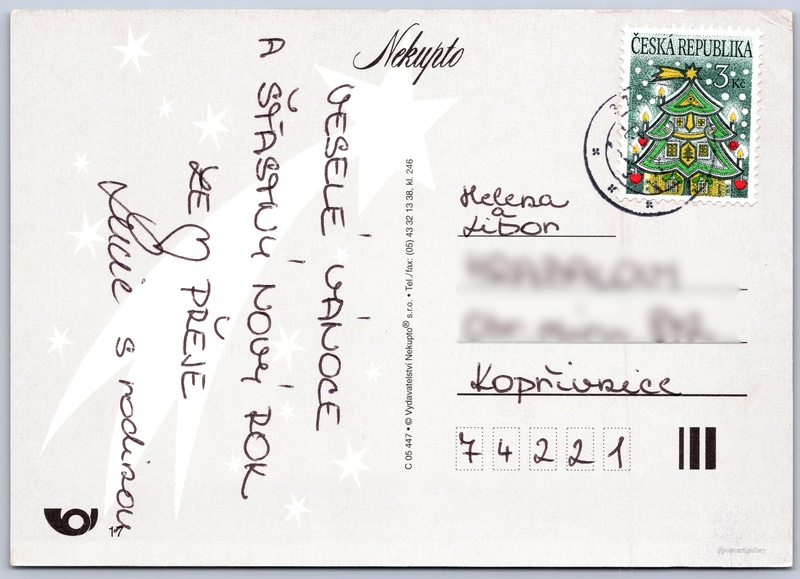 Nekupto
VESELÉ VÁNOCE
A ŠŤASTNÝ NOVÝ ROK
ZE ♡ PŘEJE
Lucie s rodinou
17
C 05 447 • © Vydavatelství Nekupto® s.r.o. • Tel./fax: (05) 43 32 13 38. kl. 246
ČESKÁ REPUBLIKA
3 Kč
Helena
a
Libor
Kopřivnice
74221